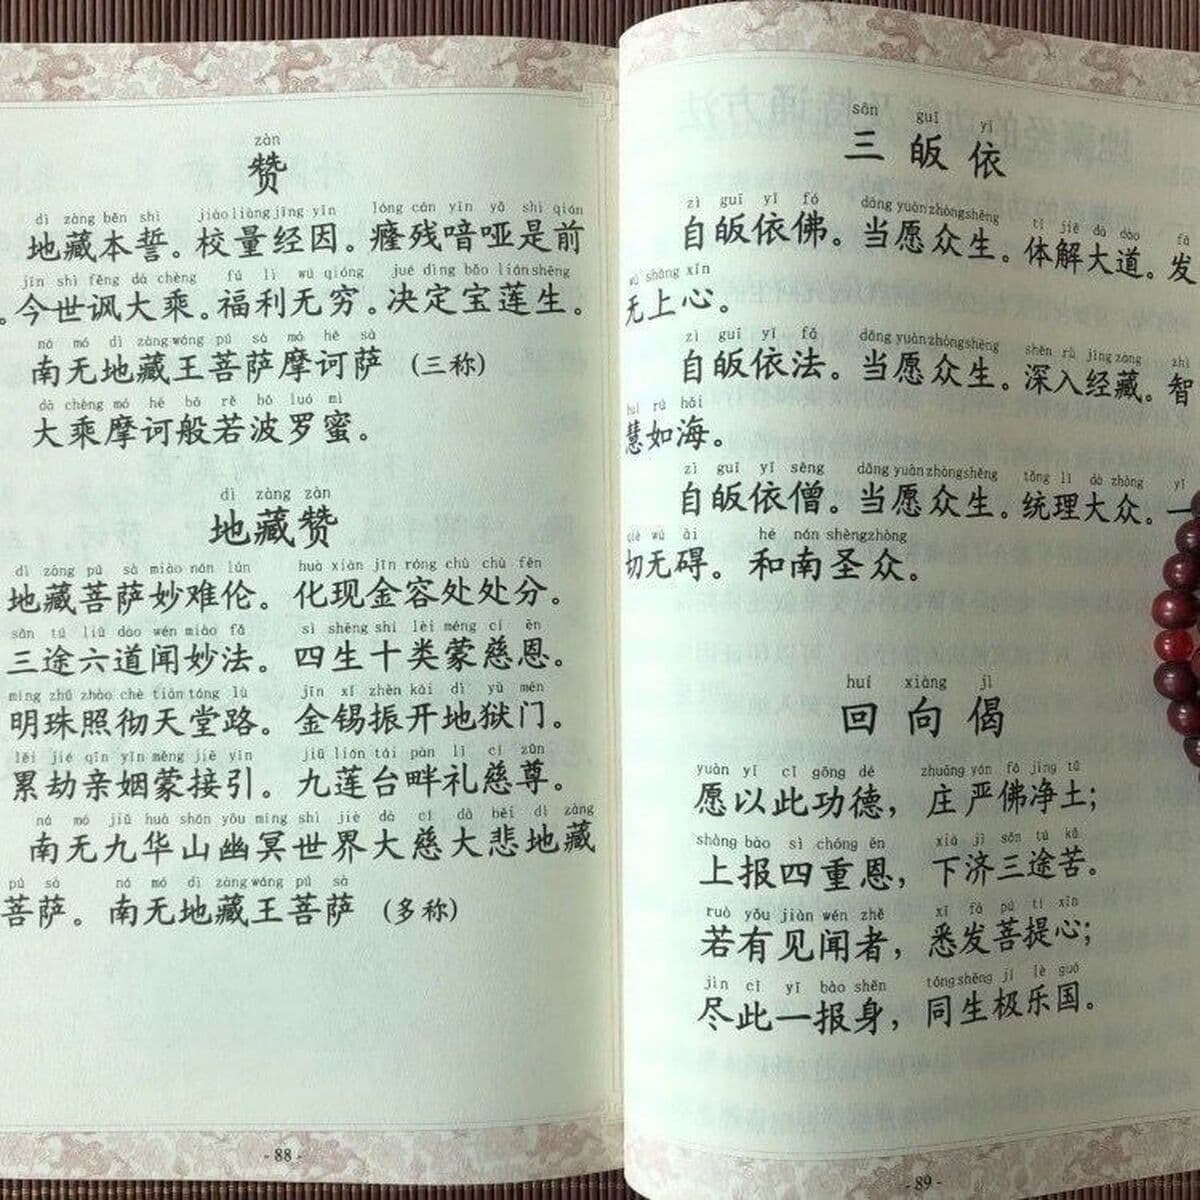 zàn
赞
dì zàng běn shì jiào liàng jīng yīn lóng cán yīn yǎ shì qián
地藏本誓。校量经因。癃残喑哑是前
jīn shì fěng dà chèng fú lì wú qióng jué dìng bǎo lián shēng
。今世讽大乘。福利无穷。决定宝莲生。
ná mó dì zàng wáng pú sà mó hē sà
南无地藏王菩萨摩诃萨 (三称)
dà chèng mó hē bō rě bō luó mì
大乘摩诃般若波罗蜜。
dì zàng zàn
地藏赞
dì zàng pú sà miào nán lún huà xiàn jīn róng chù chù fēn
地藏菩萨妙难伦。 化现金容处处分。
sān tú liù dào wén miào fǎ sì shēng shí lèi méng cí ēn
三途六道闻妙法。 四生十类蒙慈恩。
míng zhū zhào chè tiān táng lù jīn xī zhèn kāi dì yù mén
明珠照彻天堂路。 金锡振开地狱门。
lěi jié qīn yīn méng jiē yǐn jiǔ lián tái pàn lǐ cí zūn
累劫亲姻蒙接引。 九莲台畔礼慈尊。
ná mó jiǔ huá shān yōu míng shì jiè dà cí dà bēi dì zàng
南无九华山幽冥世界大慈大悲地藏
pú sà ná mó dì zàng wáng pú sà
菩萨。 南无地藏王菩萨 (多称)
- 88 -
sān guī yī
三皈依
zì guī yī fó dāng yuàn zhòng shēng tǐ jiě dà dào fā
自皈依佛。当愿众生。体解大道。发
wú shàng xīn
无上心。
zì guī yī fǎ dāng yuàn zhòng shēng shēn rù jīng zàng zhì
自皈依法。当愿众生。深入经藏。智
huì rú hǎi
慧如海。
zì guī yī sēng dāng yuàn zhòng shēng tǒng lǐ dà zhòng yī
自皈依僧。当愿众生。统理大众。一
qiè wú ài hé nán shèng zhòng
切无碍。 和南圣众。
huí xiàng jì
回向偈
yuàn yǐ cǐ gōng dé zhuāng yán fó jìng tǔ
愿以此功德，庄严佛净土；
shàng bào sì chóng ēn xià jì sān tú kǔ
上报四重恩，下济三途苦。
ruò yǒu jiàn wén zhě xī fā pú tí xīn
若有见闻者，悉发菩提心；
jìn cǐ yī bào shēn tóng shēng jí lè guó
尽此一报身，同生极乐国。
- 89 -